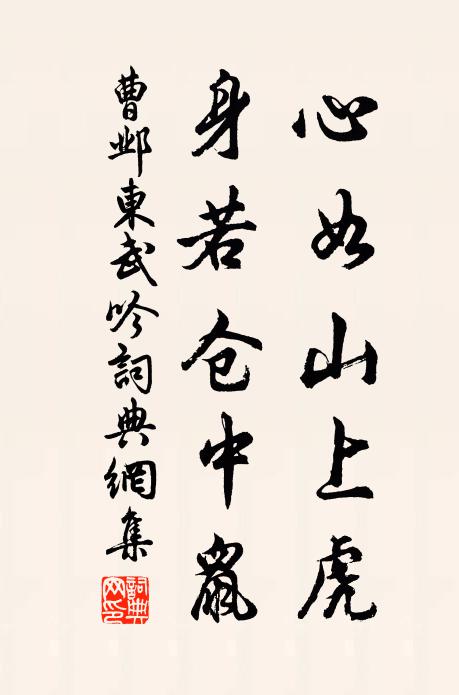 心如山上虎
身若仓中鼠
曹邺東武吟詞典網集
詞典网印